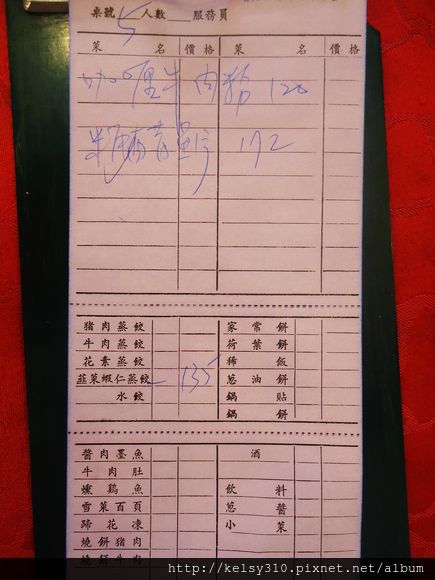 桌號 5 人數 服務員
菜名 價格 菜名 價格
咖哩牛肉 120
172
豬肉蒸餃 家常餅
牛肉蒸餃 荷葉餅
花素蒸餃 稀飯
韮菜蝦仁蒸餃 135 葱油餅
水餃 鍋貼
鍋餅
醬肉墨魚 酒
牛肉肚
燻鷄魚 飲料
雪菜百頁 葱醬
蹄花凍 小菜
燒餅豬肉
燒餅牛肉
http://kelsy310.pixnet.net/album